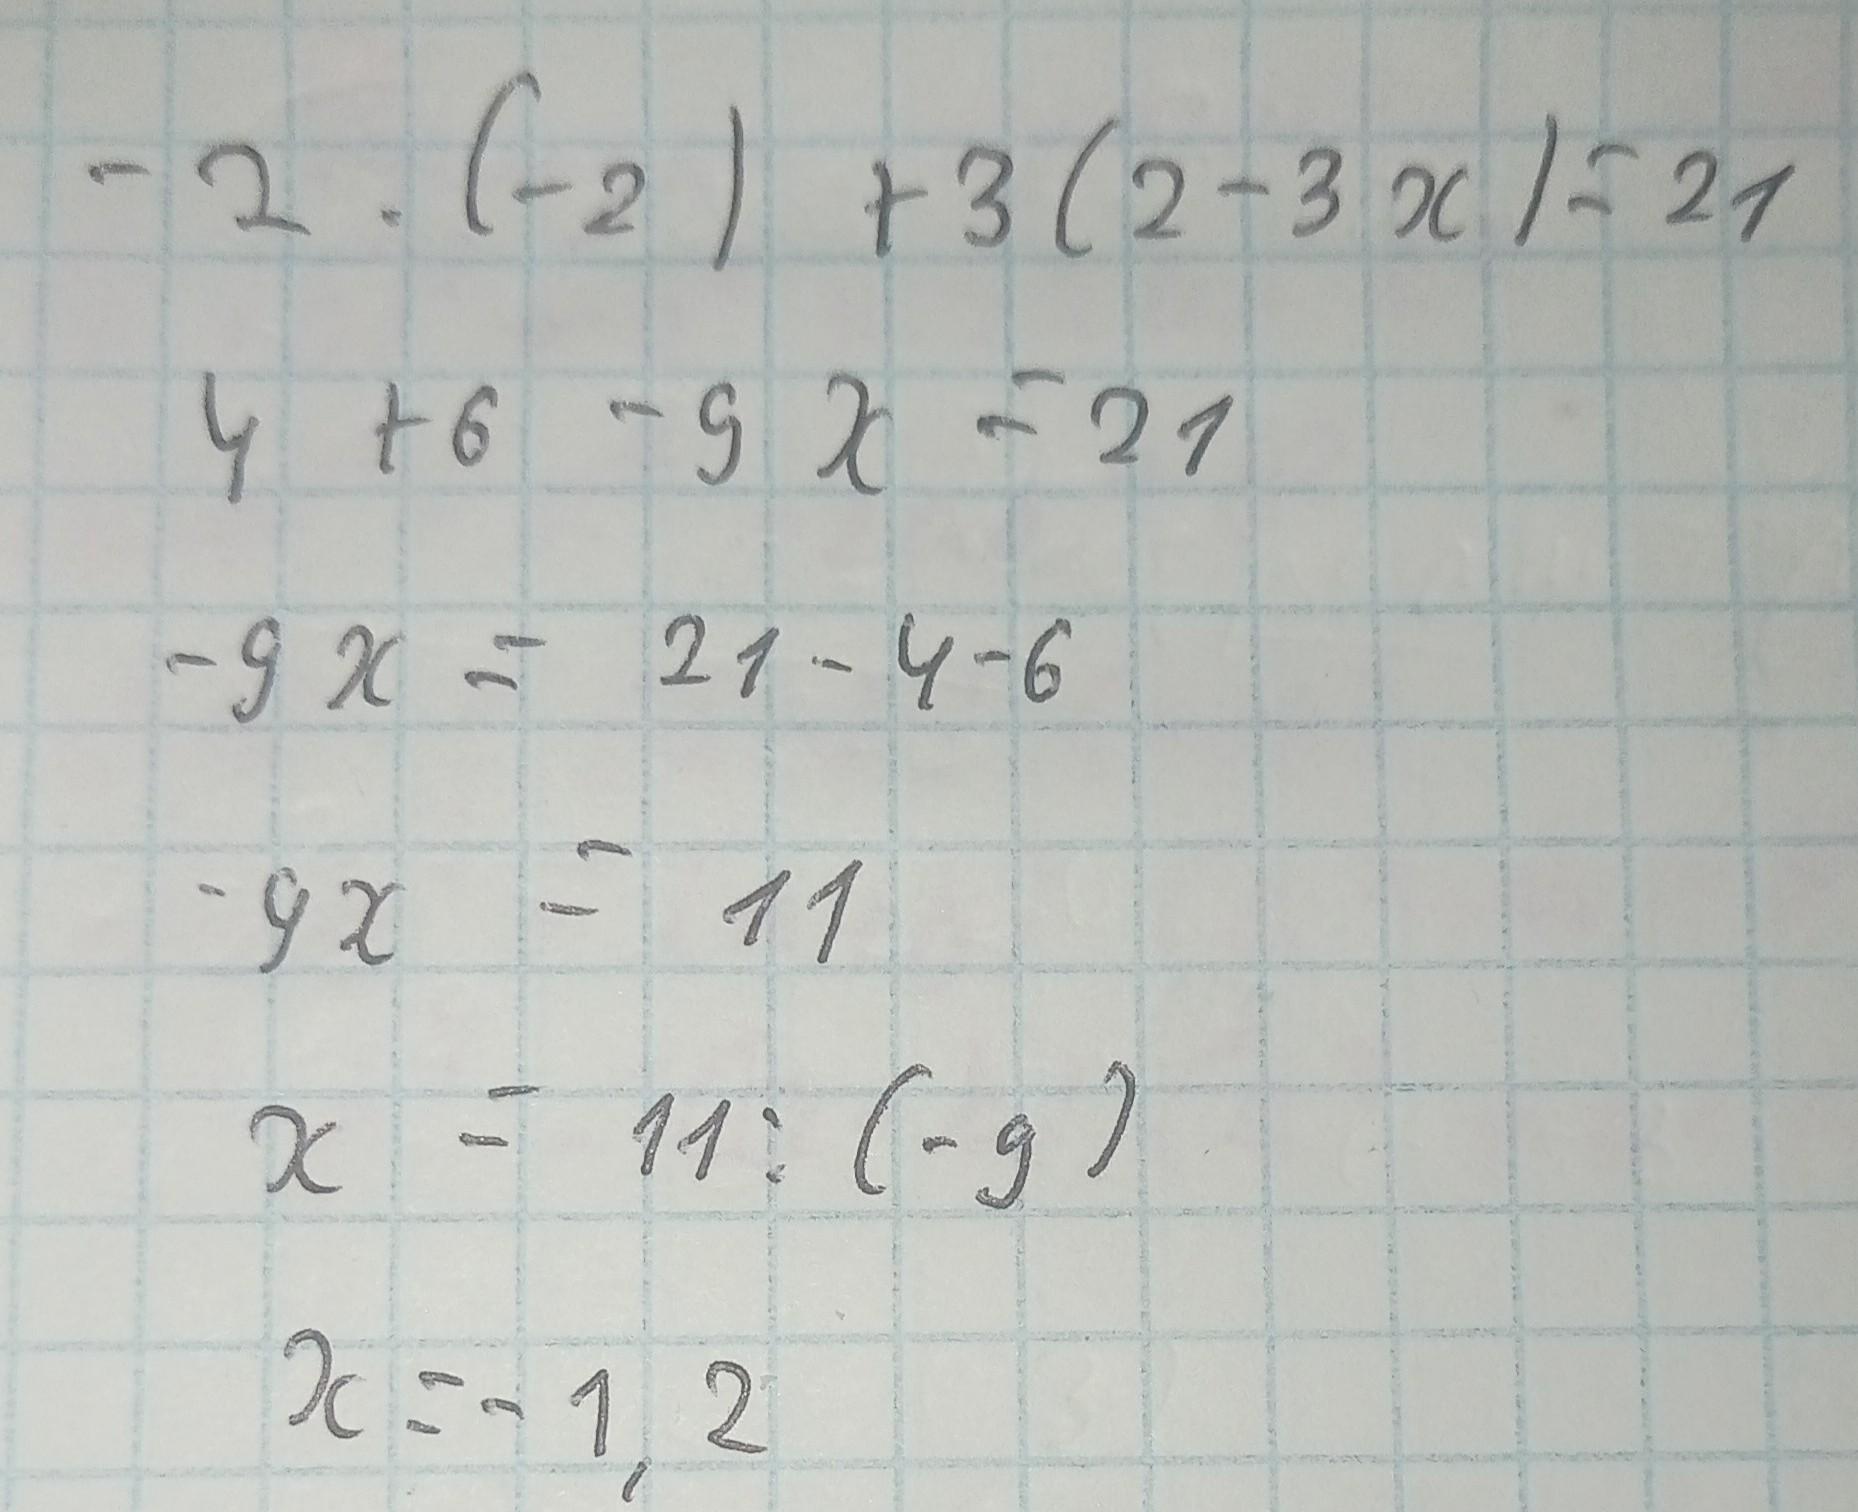 -2 · (-2) +3(2-3x)=21
4 +6 -9x =21
-9x = 21-4-6
-9x = 11
x = 11:(-9)
x=-1,2